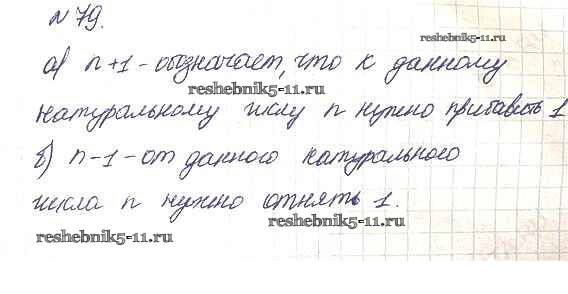 N 79.
reshebnik5-11.ru
а) n+1 - означает, что к данному
reshebnik5-11.ru
натуральному числу n нужно прибавить 1
б) n-1 - от данного натурального
числа n нужно отнять 1.
reshebnik5-11.ru
reshebnik5-11.ru